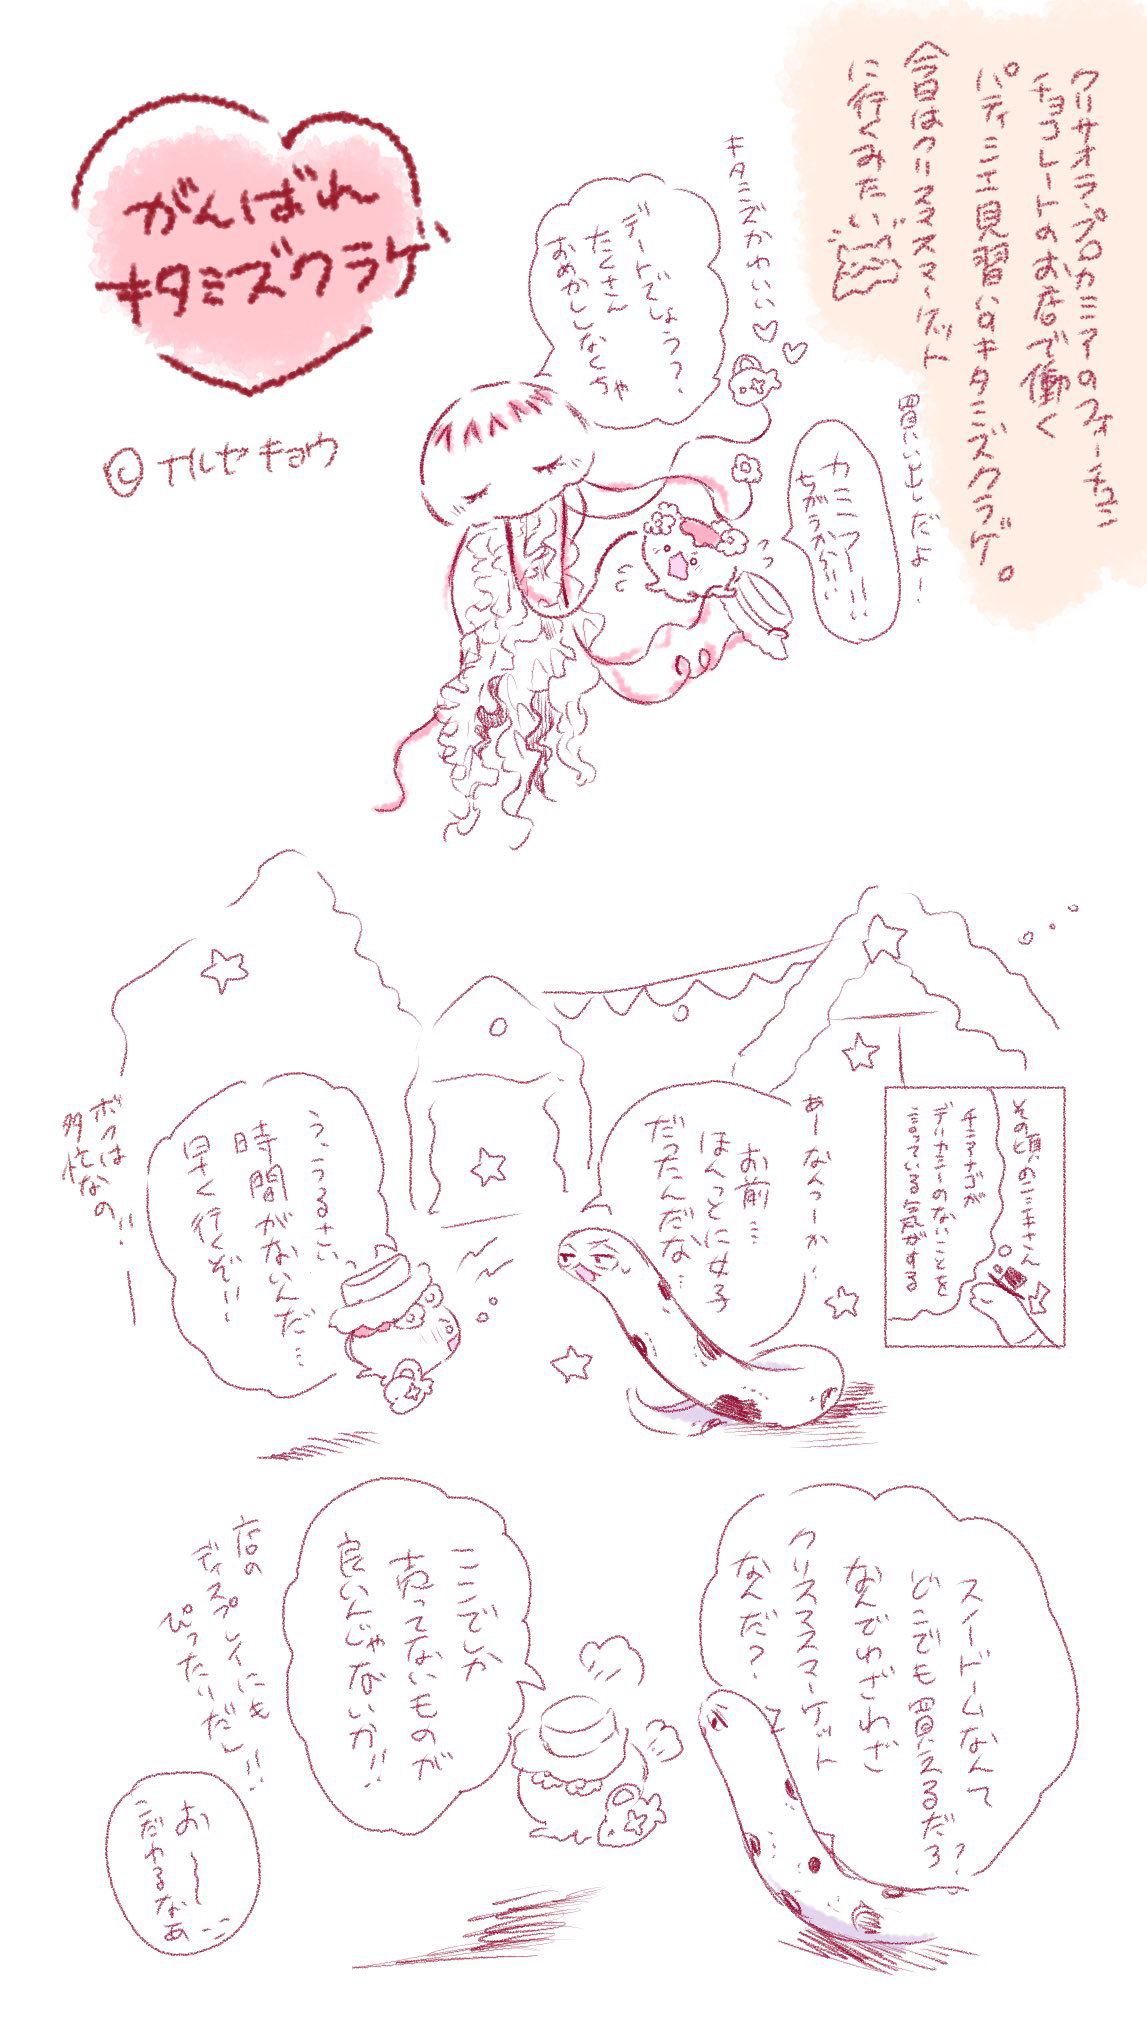 がんばれ
キタミズクラゲ
©イルセキョウ
クリサオラ・プロカミアーのフォーチュン
チョコレートのお店で働く
パティシエ見習いのキタミズクラゲ。
今日はクリスマスマーケット
に行くみたい
キタミズかわいい♡♡
デートでしょう?
たくさん
おめかししなくちゃ
買い出しだよー
カミアー!!
ちがうから!!
その通りのニシキさん
デリカシーのないことを
言っている
あーなんつーか…
お前…
ほんっとに女子
だったんだな…
う、うるさい
時間がないんだ…
早く行くぞ!!
ボクは
多忙なの!!
スノードームなんて
どこでも買えるだろ?
なんでわざわざ
クリスマスマーケット
なんだ?
ここでしか
売ってないものが
良いんじゃないか!!
店の
ディスプレイにも
ぴったりだし!!
お〜〜
こだわるなあ